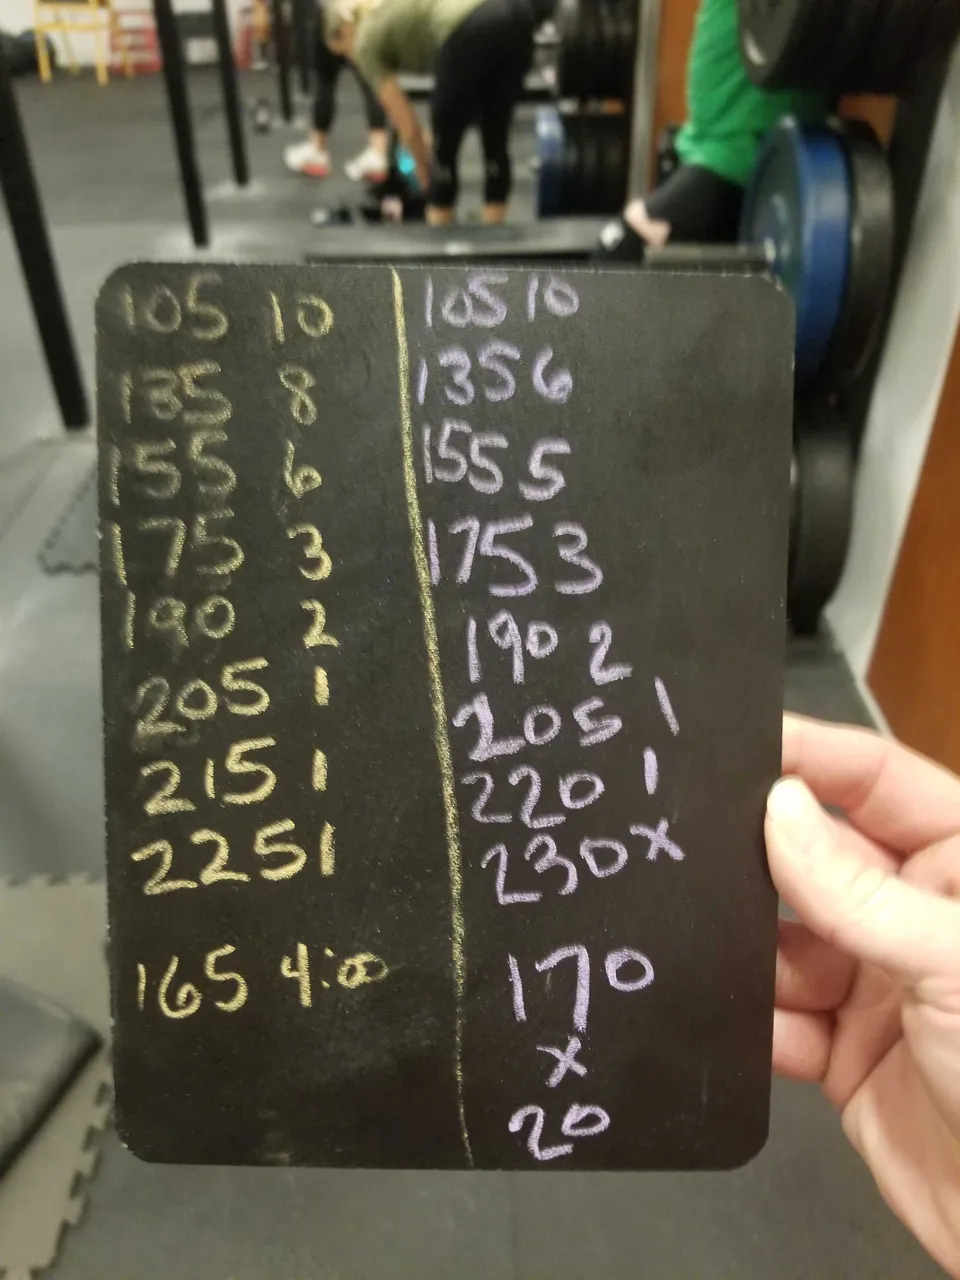 105 10
135 8
155 6
175 3
190 2
205 1
215 1
225 1
165 4:00
105 10
135 6
155 5
175 3
190 2
205 1
220 1
230 x
170
x
20